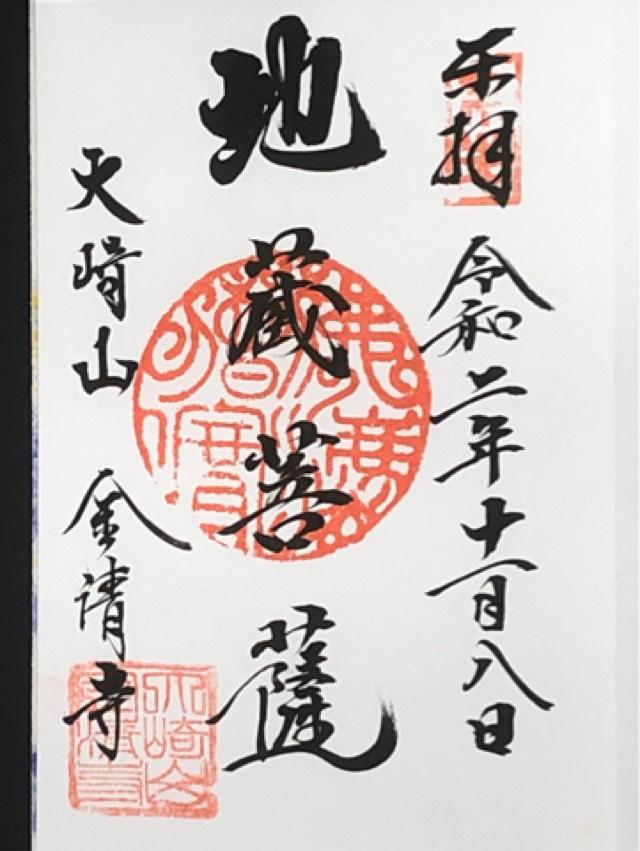 奉拝 令和二年十一月八日
地蔵菩薩
天崎山 金清寺